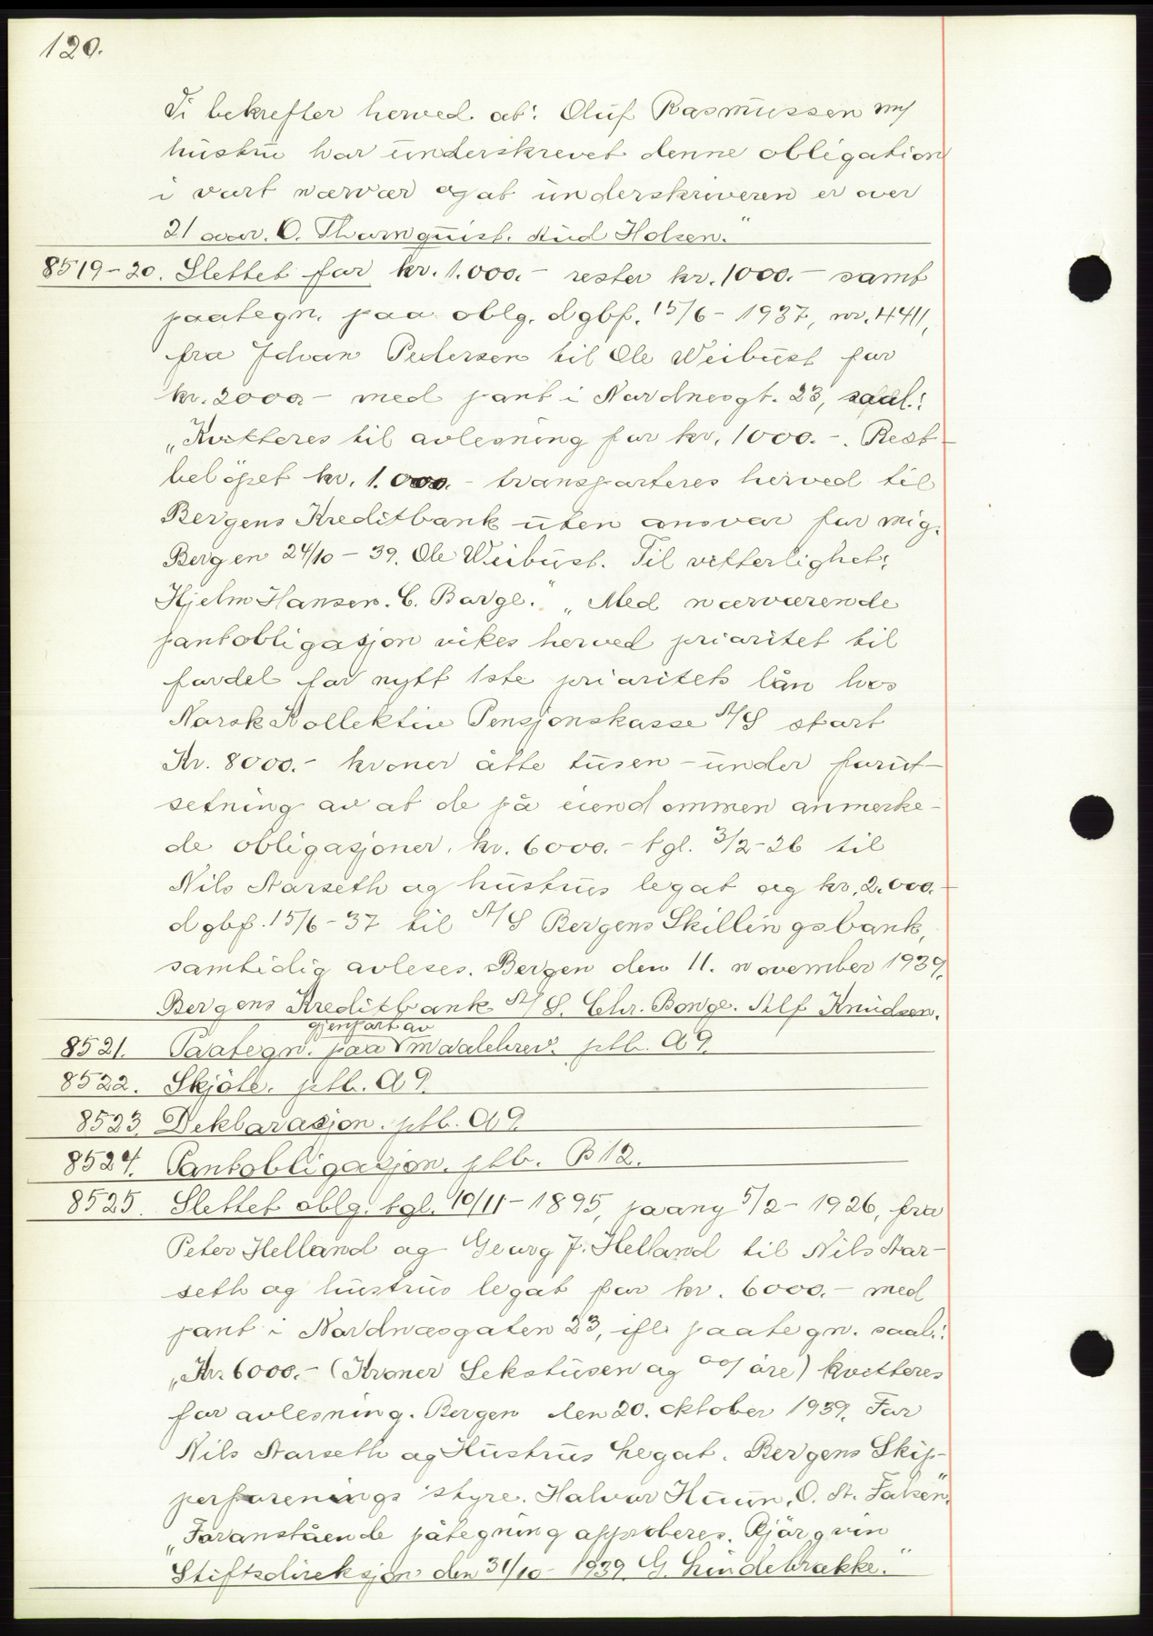 120.
Vi bekrefter herved at: Oluf Rasmussen m/
hustru har underskrevet denne obligation
i vort nærvær og at underskriveren er over
21 aar. O. Thornquist. Aud Holsen."
8519-20. Slettet for kr. 1.000.- rester kr. 1000.- samt
paategn. paa oblg. dgbf. 15/6 - 1937, nr. 4411,
fra Johan Pedersen til Ole Weibust for
kr. 2000.- med pant i Nordnesgt. 23, saal.:
"Kvitteres til avlesning for kr. 1000.-. Rest-
beløpet kr. 1.000.- transporteres herved til
Bergens Kreditbank uten ansvar for mig.
Bergen 24/10 - 39. Ole Weibust. Til vitterlighet:
Hjelm Hansen. C. Borge." "Med nærværende
pantobligasjon vikes herved prioritet til
fordel for nytt 1ste prioritets lån hos
Norsk Kollektiv Pensjonskasse A/S stort
Kr. 8000.- kroner åtte tusen - under forut-
setning av at de på eiendommen anmerke-
de obligasjoner. kr. 6000.- tgl. 3/2-26 til
Nils Aarseth og hustrus legat og kr. 2.000.-
dgbf. 15/6-37 til A/S Bergens Skillingsbank,
samtidig avleses. Bergen den 11. november 1939.
Bergens Kreditbank A/S. Chr. Borge. Alf Knudsen.
gjenpart av
8521. Paategn. paa maalebrev. ptb. A 9.
8522. Skjöte. ptb. A 9.
8523. Deklarasjon. ptb. A 9
8524. Pantobligasjon. ptb. B 12.
8525. Slettet oblg. tgl. 10/11 - 1895, paany 5/2 - 1926, fra
Peter Helland og Georg J. Helland til Nils Aar-
seth og hustrus legat for kr. 6000.- med
pant i Nordnæsgaten 23, ifl. paategn. saal.:
"Kr. 6000.- (Kroner Sekstusen og 00/ öre) kvitteres
for avlesning. Bergen den 20. oktober 1939. For
Nils Aarseth og Hustrus Legat. Bergens Skip-
perforenings styre. Halvor Huun. O. A. Falsen".
"Foranstående påtegning approberes. Bjørgvin
Stiftsdireksjon den 31/10 - 1939. G. Lindebrække."